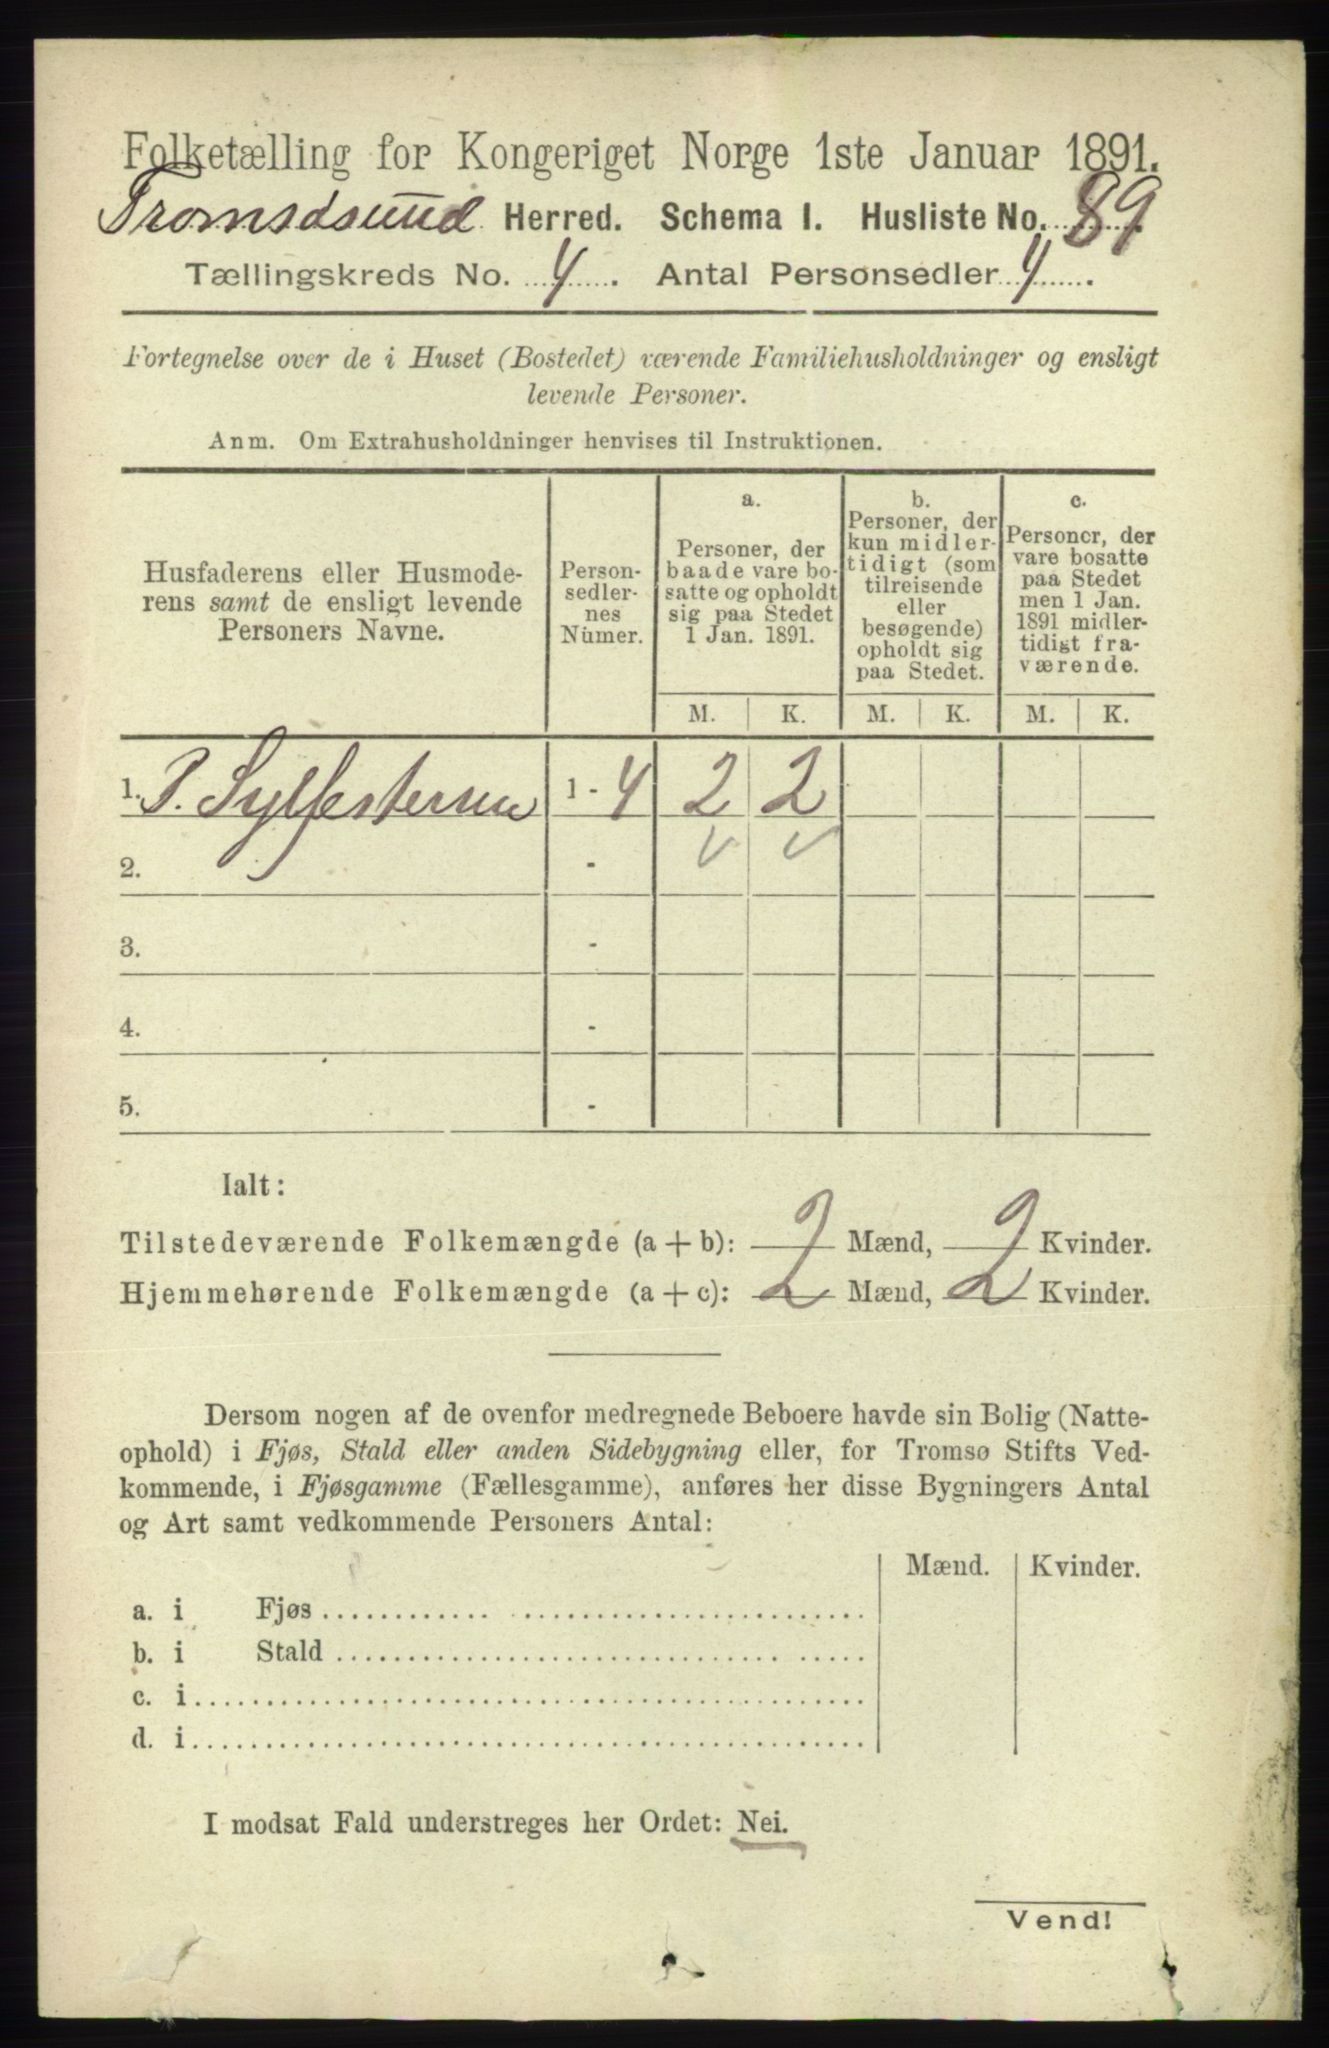 Folketælling for Kongeriget Norge 1ste Januar 1891.
Tromsösund Herred. Schema I. Husliste No. 89
Tællingskreds No. 4. Antal Personsedler 4.
Fortegnelse over de i Huset (Bostedet) værende Familiehusholdninger og ensligt
levende Personer.
Anm. Om Extrahusholdninger henvises til Instruktionen.
Husfaderens eller Husmode-
rens samt de ensligt levende
Personers Navne.
Person-
sedler-
nes
Numer.
a.
Personer, der
baade vare bo-
satte og opholdt
sig paa Stedet
1 Jan. 1891.
b.
Personer, der
kun midler-
tidigt (som
tilreisende
eller
besøgende)
opholdt sig
paa Stedet.
c.
Personer, der
vare bosatte
paa Stedet
men 1 Jan.
1891 midler-
tidigt fra-
værende.
M. K. M. K. M. K.
1. P. Sylfestersen 1 - 4 2 2
2. - v v
3. -
4. -
5. -
Ialt:
Tilstedeværende Folkemængde (a + b): 2 Mænd, 2 Kvinder.
Hjemmehørende Folkemængde (a + c): 2 Mænd, 2 Kvinder.
Dersom nogen af de ovenfor medregnede Beboere havde sin Bolig (Natte-
ophold) i Fjøs, Stald eller anden Sidebygning eller, for Tromsø Stifts Ved-
kommende, i Fjøsgamme (Fællesgamme), anføres her disse Bygningers Antal
og Art samt vedkommende Personers Antal:
Mænd. Kvinder.
a. i Fjøs
b. i Stald
c. i
d. i
I modsat Fald understreges her Ordet: Nei.
Vend!